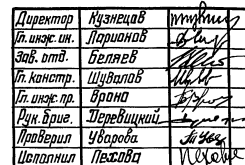 Директор Кузнецов
Гл. инж. ин. Ларионов
Зав. отд. Беляев
Гл. констр. Шувалов
Гл. инж. пр. Врона
Рук. бриг. Деревицкий
Проверил Уварова
Исполнил Песова